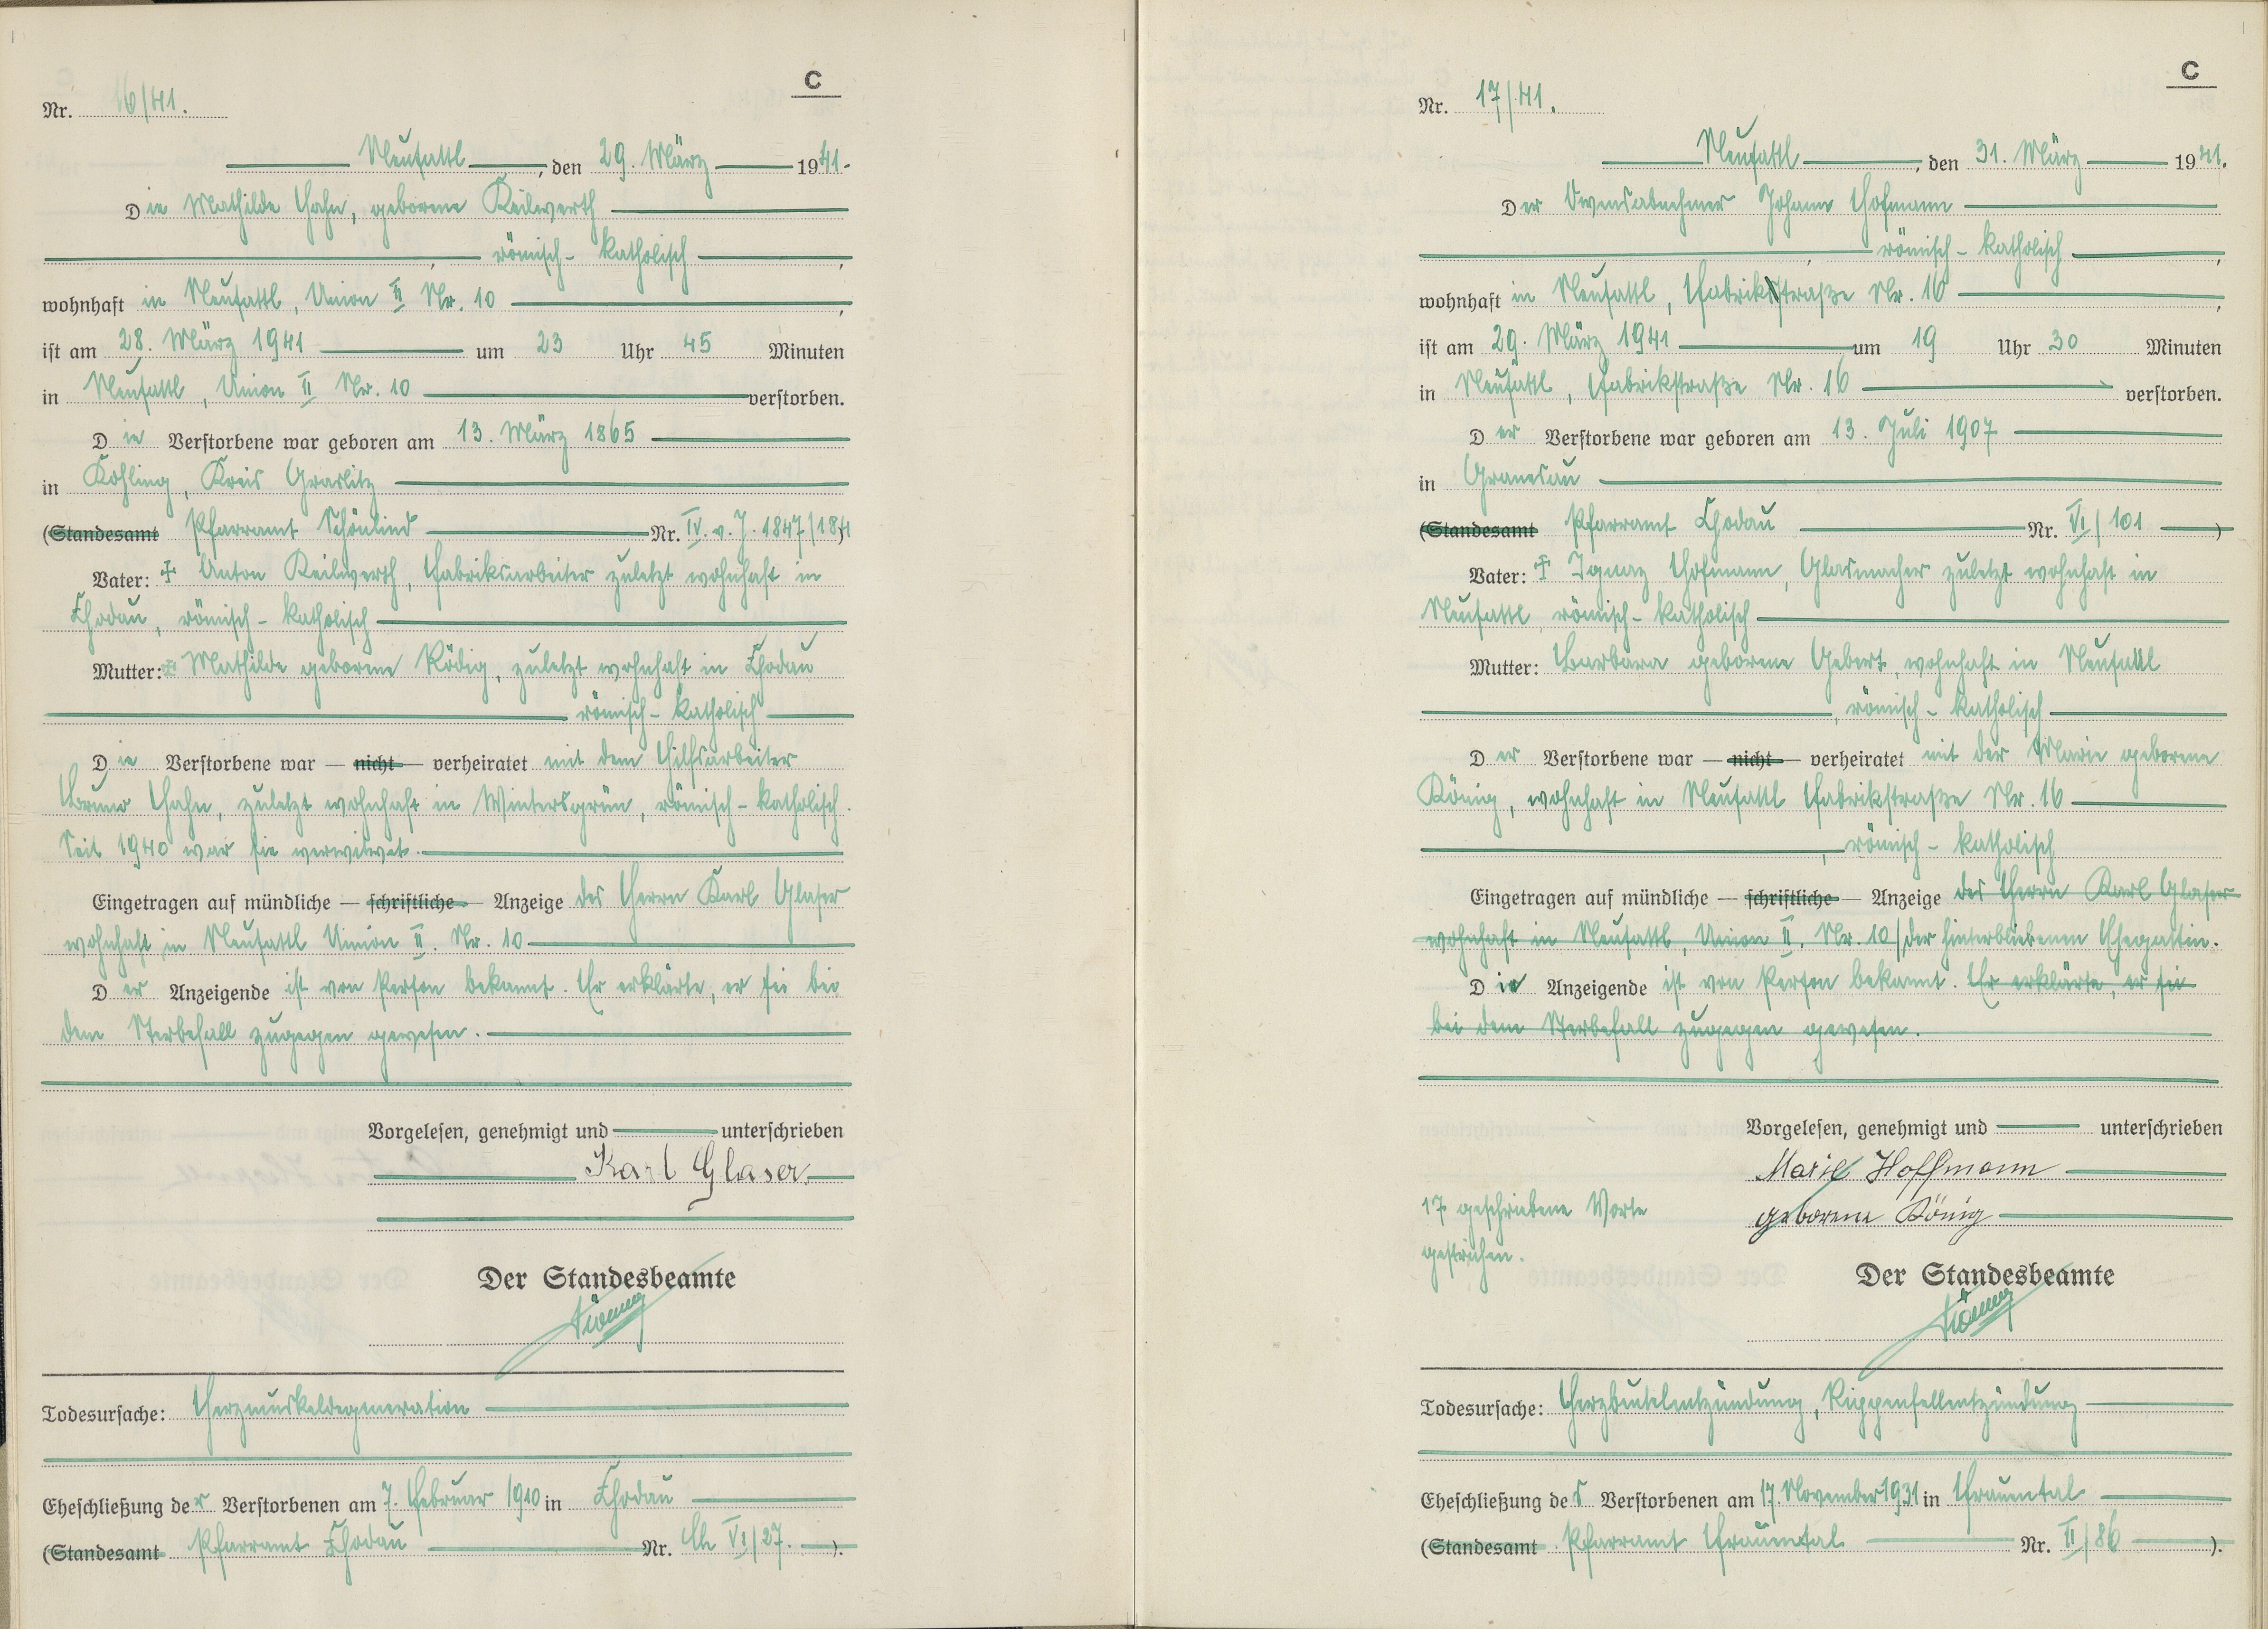 C
Nr. 16/41.
Neusattl, den 29. März 1941.
Die Mathilde Hahn, geborene Keilwerth
, römisch-katholisch,
wohnhaft in Neusattl, Union II Nr. 10,
ist am 28. März 1941 um 23 Uhr 45 Minuten
in Neusattl, Union II Nr. 10 verstorben.
Die Verstorbene war geboren am 13. März 1865
in Kohling, Kreis Graslitz
(Standesamt Pfarramt Schönlind Nr. IV. v. J. 1847/184)
Vater: ✠ Anton Keilwerth, Fabriksarbeiter zuletzt wohnhaft in
Chodau, römisch-katholisch
Mutter: ✠ Mathilde geborene Rödig, zuletzt wohnhaft in Chodau
römisch-katholisch
Die Verstorbene war — nicht — verheiratet mit dem Hilfsarbeiter
Bruno Hahn, zuletzt wohnhaft in Wintersgrün, römisch-katholisch.
Seit 1940 war sie verwitwet.
Eingetragen auf mündliche — schriftliche — Anzeige des Herrn Karl Glaser
wohnhaft in Neusattl Union II. Nr. 10
Der Anzeigende ist von Person bekannt. Er erklärte, er sei bei
dem Sterbefall zugegen gewesen.
Vorgelesen, genehmigt und unterschrieben
Karl Glaser
Der Standesbeamte
Todesursache: Herzmuskeldegeneration
Eheschließung der Verstorbenen am 7. Februar 1910 in Chodau
(Standesamt Pfarramt Chodau Nr. VI/27.).
C
Nr. 17/41.
Neusattl, den 31. März 1941.
Der Johann Hofmann
, römisch-katholisch,
wohnhaft in Neusattl, Fabrikstraße Nr. 16,
ist am 29. März 1941 um 19 Uhr 30 Minuten
in Neusattl, Fabrikstraße Nr. 16 verstorben.
Der Verstorbene war geboren am 13. Juli 1907
in Granesau
(Standesamt Pfarramt Chodau Nr. VI/101)
Vater: ✠ Ignaz Hofmann, Glasmacher zuletzt wohnhaft in
Neusattl, römisch-katholisch
Mutter: Barbara geborene Gebert, wohnhaft in Neusattl
, römisch-katholisch
Der Verstorbene war — nicht — verheiratet mit der Marie geborene
König, wohnhaft in Neusattl Fabrikstraße Nr. 16
, römisch-katholisch
Eingetragen auf mündliche — schriftliche — Anzeige des Herrn Karl Glaser
wohnhaft in Neusattl, Union II. Nr. 10/der hinterbliebenen Ehegattin.
Die Anzeigende ist von Person bekannt. Er erklärte, er sei
bei dem Sterbefall zugegen gewesen.
Vorgelesen, genehmigt und unterschrieben
Marie Hoffmann
geborene König
17 geschriebene Worte
gestrichen.
Der Standesbeamte
Todesursache: Herzbeutelentzündung, Rippenfellentzündung
Eheschließung des Verstorbenen am 17. November 1931 in Frauental
(Standesamt Pfarramt Frauental Nr. II/86).